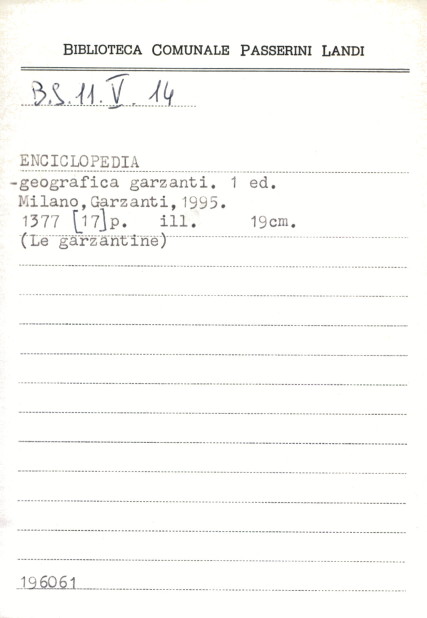 BIBLIOTECA COMUNALE PASSERINI LANDI
B.S.11.V.14
ENCICLOPEDIA
-geografica garzanti. 1 ed.
Milano,Garzanti,1995.
1377 [17]p. ill. 19cm.
(Le garzantine)
196061